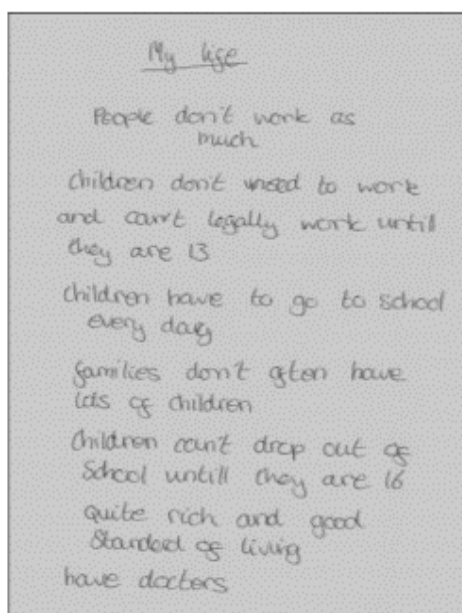 My life
People don't work as
much
children don't need to work
and can't legally work until
they are 13
children have to go to school
every day
families don't often have
lots of children
children can't drop out of
school untill they are 16
quite rich and good
standed of living
have doctors